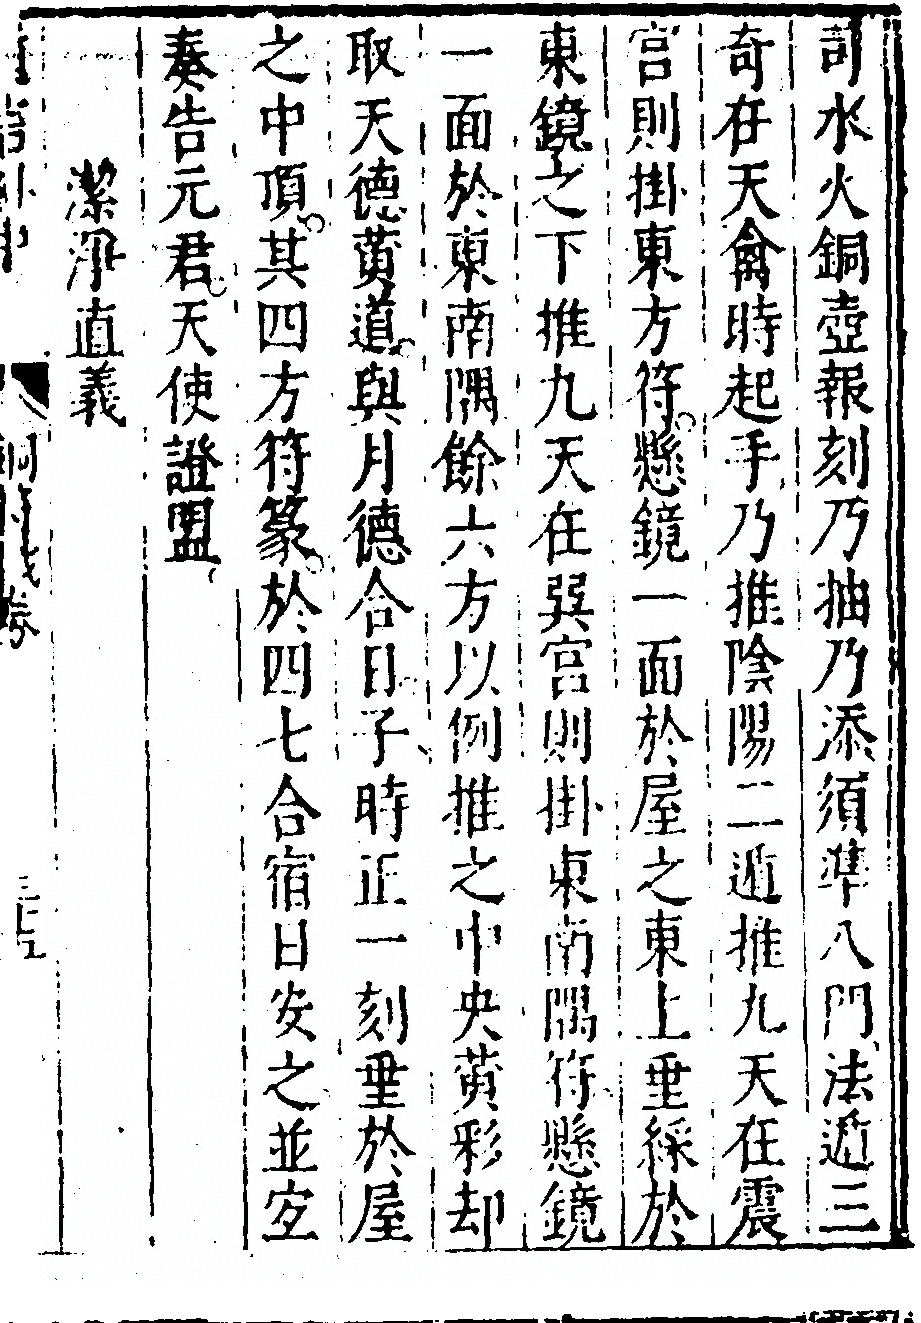 司水火銅壺報刻乃抽乃添須準八門法遁三
奇在天禽時起手乃推陰陽二遁推九天在震
宮則掛東方符懸鏡一面於屋之東上垂綵於
東鏡之下推九天在巽宮則掛東南隅符懸鏡
一面於東南隅餘六方以例推之中央黃彩却
取天德黃道與月德合日子時正一刻垂於屋
之中頂其四方符篆於四七合宿日安之並宜
奏告元君天使證盟
潔淨直義